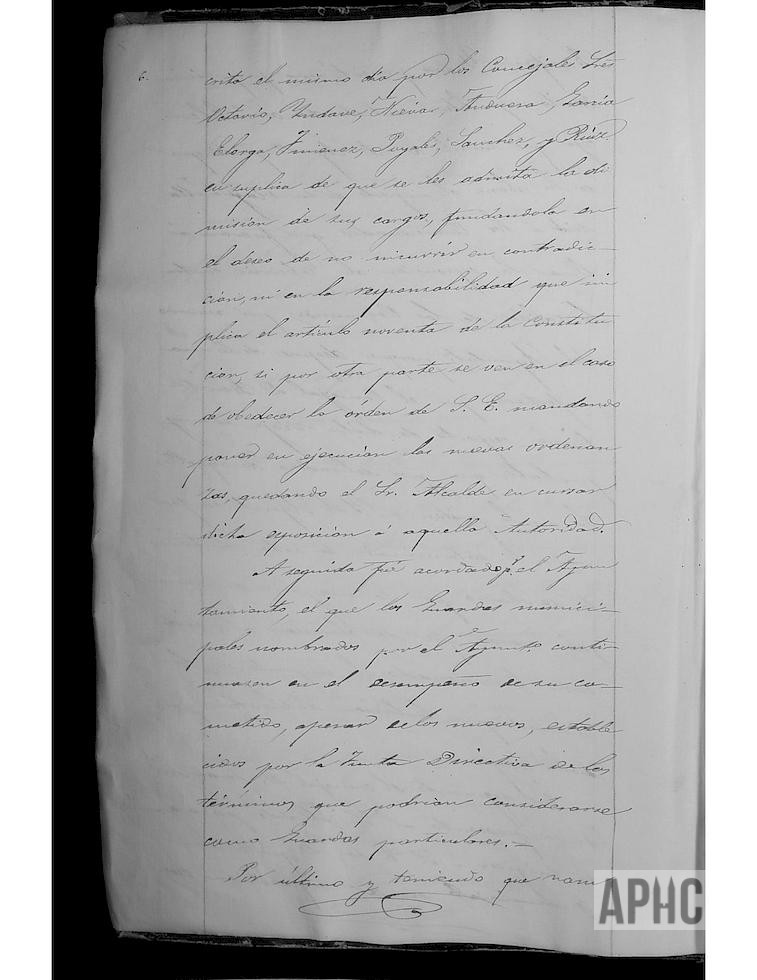 6.
crito el mismo dia por los Concejales Sres
Octavio, Yndave, Nieva, Anduesa, Garcia
Elorga, Jimenez, Pugales, Sanchez, y Ruiz
en suplica de que se les admita la di
misión de sus cargos, fundandola en
el deseo de no incurrir en contradic-
cion, ni en la responsabilidad que im
plica el artículo noventa de la Constitu
cion, si por otra parte se ven en el caso
de obedecer la órden de S. E. mandando
poner en ejecucion las nuevas ordenan
zas, quedando el Sr. Alcalde en cursar
dicha esposición á aquella Autoridad.
A seguida fué acordado pr. el Ayun
tamiento, el que los Guardas munici-
pales nombrados por el Ayunto. conti-
nuasen en el desempeño de su co-
metido, apesar de los nuevos, estable
cidos por la Junta Directiva de los
términos que podrian considerarse
como Guardas particulares.-
Por último y teniendo que nom
APHC